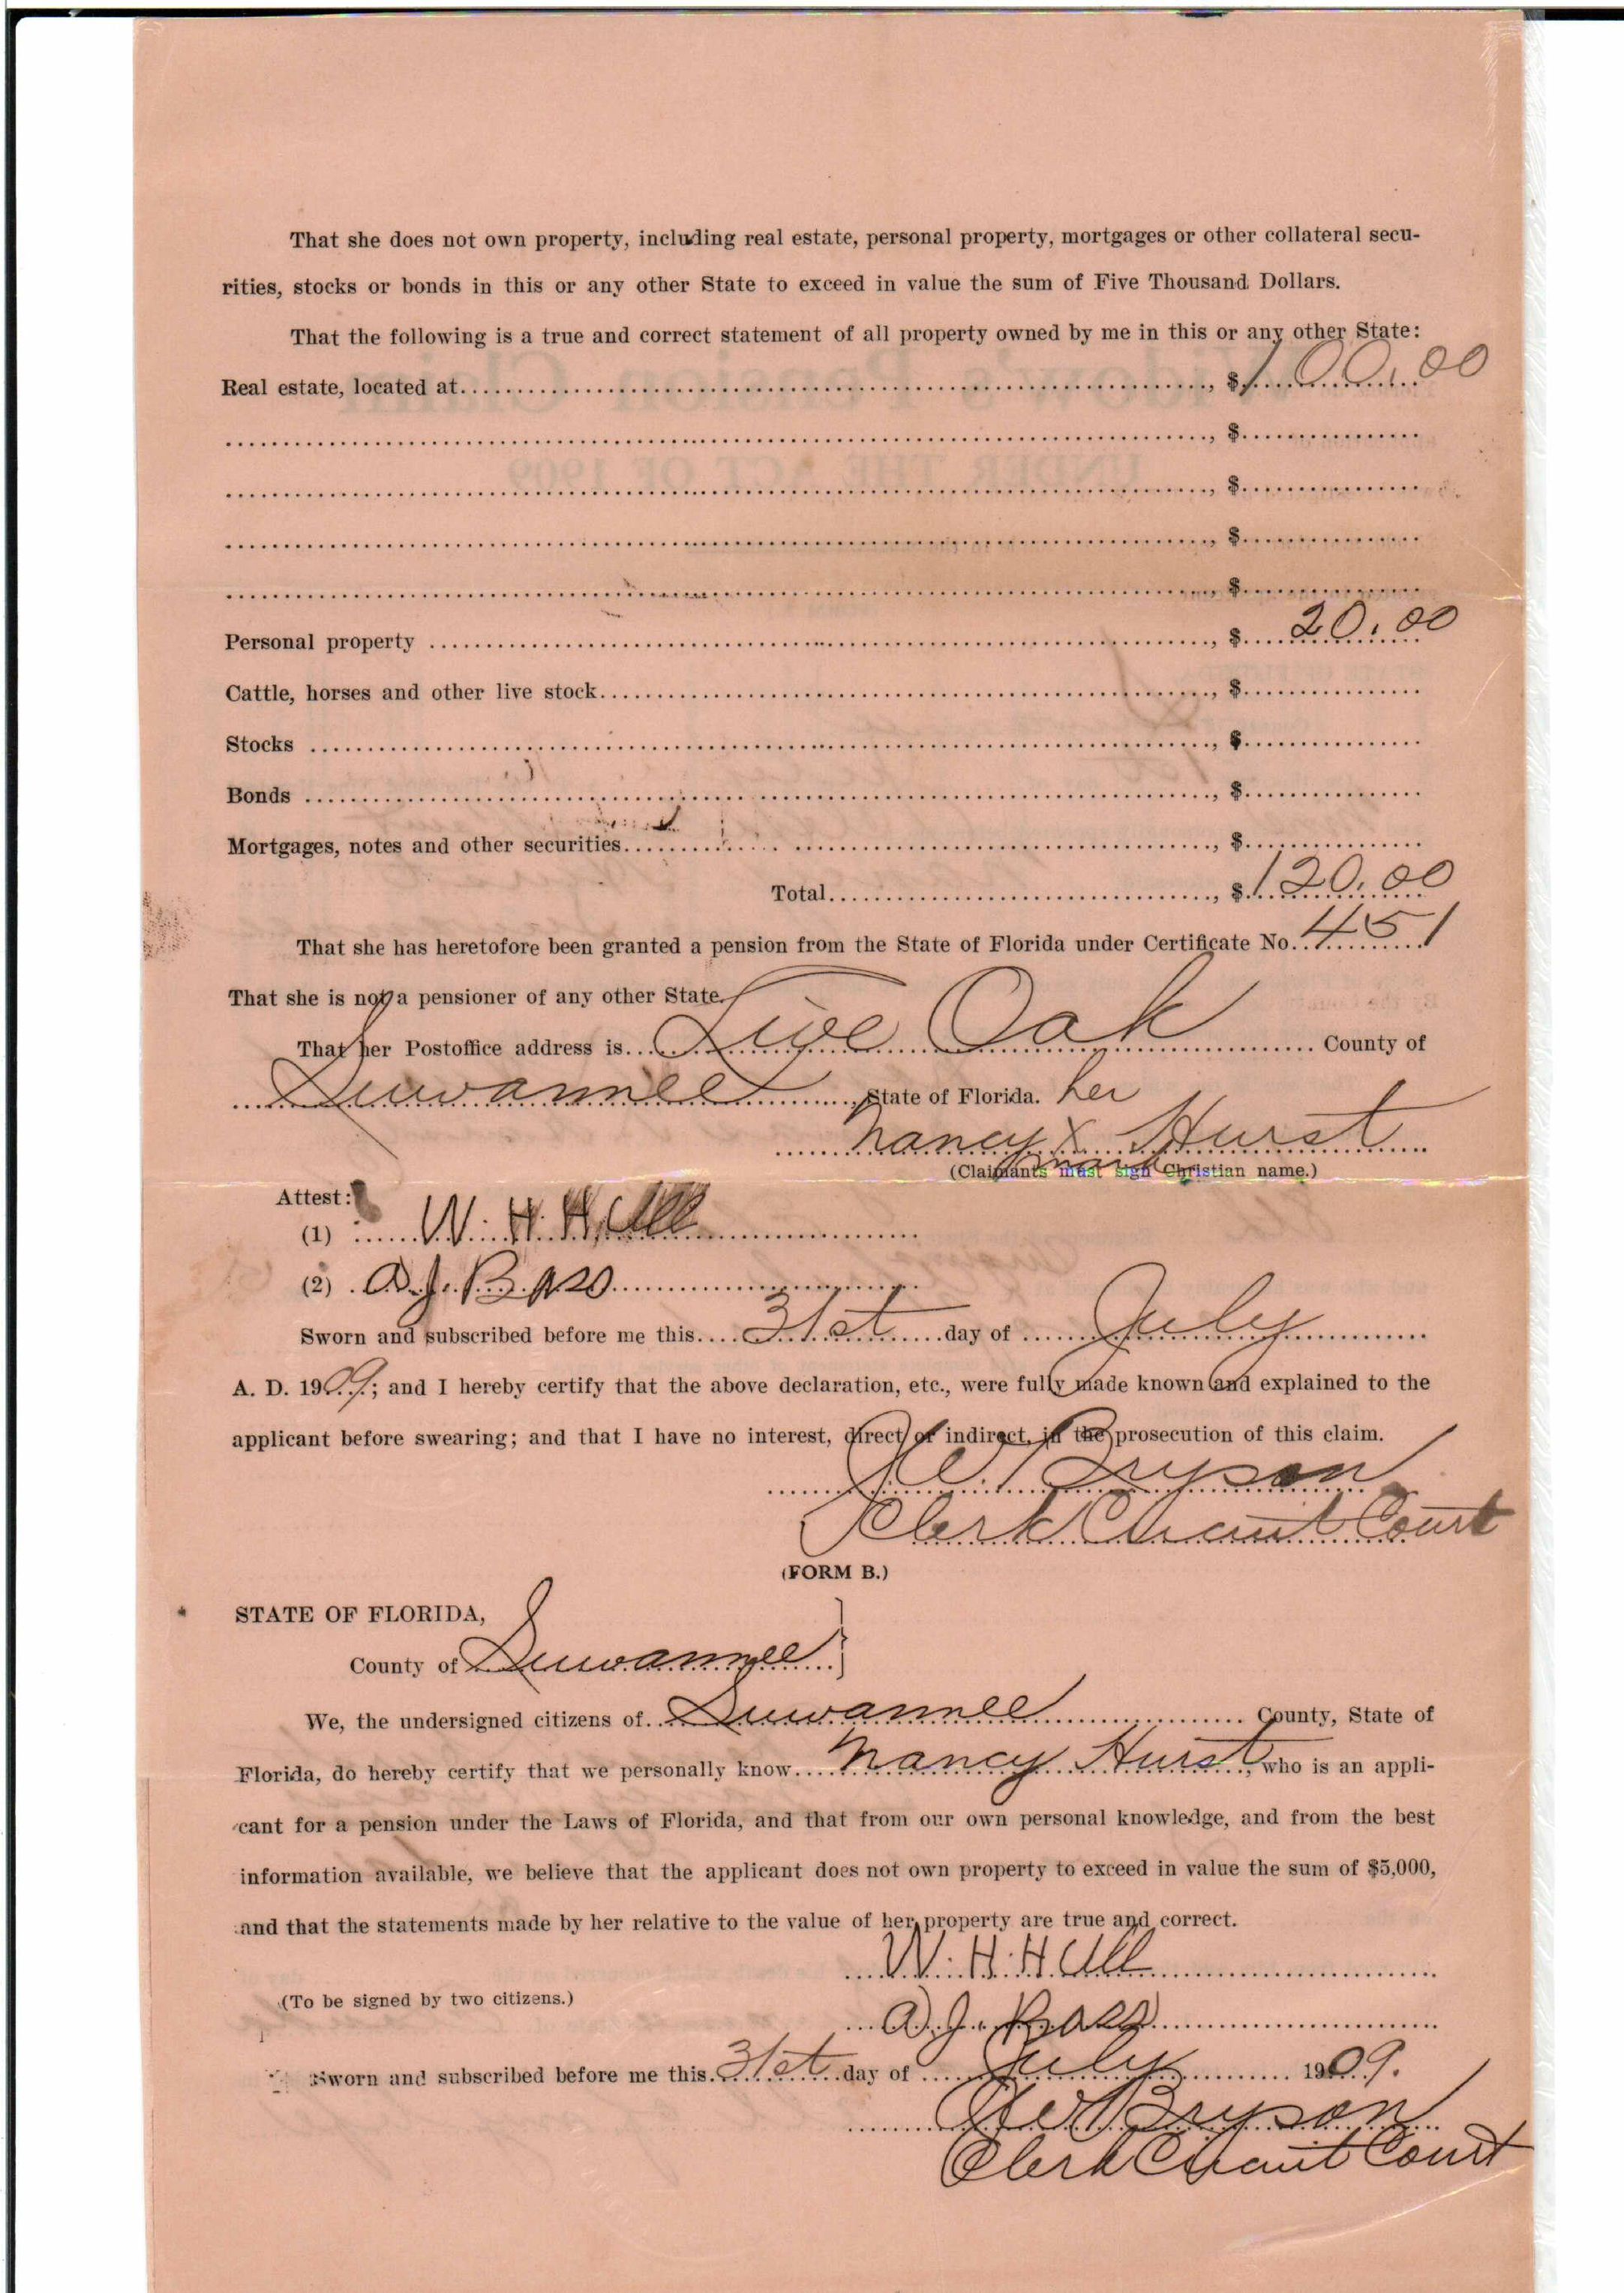 That she does not own property, including real estate, personal property, mortgages or other collateral secu-
rities, stocks or bonds in this or any other State to exceed in value the sum of Five Thousand Dollars.
That the following is a true and correct statement of all property owned by me in this or any other State:
Real estate, located at.........., $100.00
.........., $..........
.........., $..........
.........., $..........
.........., $..........
Personal property .........., $ 20.00
Cattle, horses and other live stock.........., $..........
Stocks .........., $..........
Bonds .........., $..........
Mortgages, notes and other securities.........., $..........
Total.........., $120.00
That she has heretofore been granted a pension from the State of Florida under Certificate No. 451
That she is not a pensioner of any other State.
That her Postoffice address is Live Oak County of
Suwannee, State of Florida. her
Nancy x Hurst
mark
(Claimants must sign Christian name.)
Attest:
(1) W. H. H.
(2) A. J. Bass
Sworn and subscribed before me this 31st day of July
A. D. 1909; and I hereby certify that the above declaration, etc., were fully made known and explained to the
applicant before swearing; and that I have no interest, direct or indirect, in the prosecution of this claim.
Bryson
Clerk Circuit Court
(FORM B.)
STATE OF FLORIDA,
County of Suwannee
We, the undersigned citizens of Suwannee County, State of
Florida, do hereby certify that we personally know Nancy Hurst, who is an appli-
cant for a pension under the Laws of Florida, and that from our own personal knowledge, and from the best
information available, we believe that the applicant does not own property to exceed in value the sum of $5,000,
and that the statements made by her relative to the value of her property are true and correct.
W. H. H.
(To be signed by two citizens.)
A. J. Bass
Sworn and subscribed before me this 31st day of July 1909.
Bryson
Clerk Circuit Court